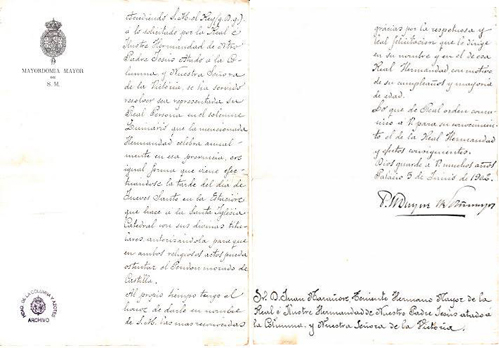 MAYORDOMIA MAYOR
DE
S. M.
Accediendo S. M. el Rey (q. D. g.)
a lo solicitado por la Real é
Ilustre Hermandad de Ntro
Padre Jesús Atado a la Co-
lumna y Nuestra Señora
de la Victoria, se ha servido
resolver sea representada su
Real Persona en el solemne
Quinario que la mencionada
Hermandad celebra anual-
mente en esa provincia, en
igual forma que viene efec-
tuandose la tarde del día de
Jueves Santo en la Estacion
que hace a la Santa Iglesia
Catedral con sus divinas titu-
lares, autorizándola para que
en ambos religiosos actos pueda
ostentar el Pendon morado de
Castilla.
Al propio tiempo tengo el
honor de darle en nombre
de S. M. las mas reconocidas
ARCHIVO
gracias por la respetuosa y
leal felicitacion que le dirige
en su nombre y en el de esa
Real Hermandad con motivo
de su cumpleaños y mayoria
de edad.
Lo que de Real orden comu-
nico a V. para su conocimiento
el de la Real Hermandad
y efectos consiguientes.
Dios guarde a V. muchos años
Palacio 3 de Junio de 1902.
Sr. D. Juan Teniente Hermano Mayor de la
Real é Ilustre Hermandad de Nuestro Padre Jesús atado a
la Columna, y Nuestra Señora de la Victoria.